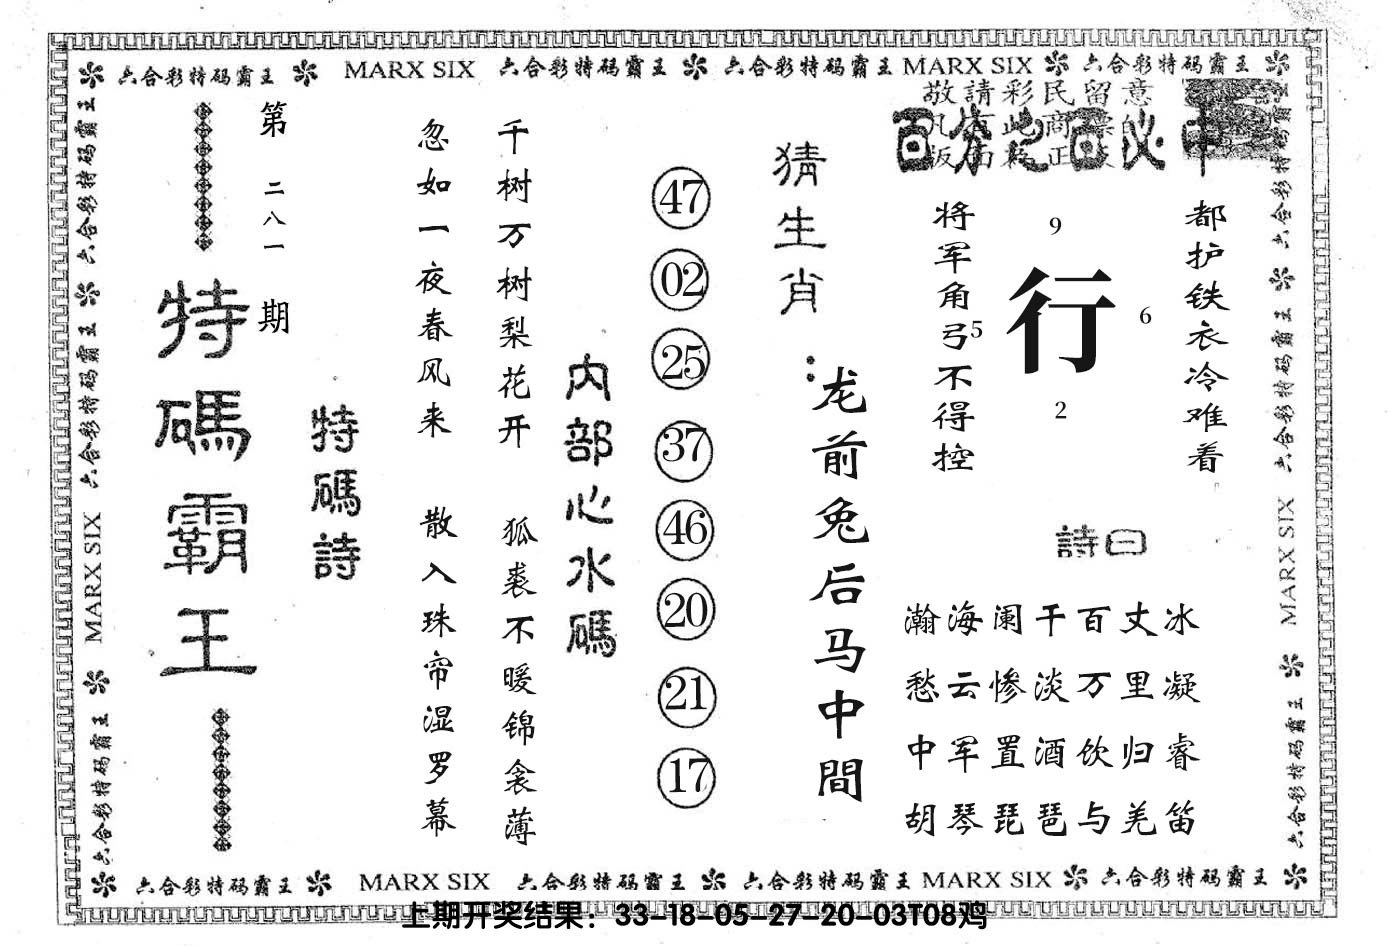 六合彩特码霸王 MARX SIX 六合彩特码霸王 六合彩特码霸王 MARX SIX 六合彩特码霸王
敬請彩民留意
百分之百必中
第二八一期
特碼霸王
特碼詩
忽如一夜春风来
千树万树梨花开
散入珠帘湿罗幕
狐裘不暖锦衾薄
内部心水碼
47
02
25
37
46
20
21
17
猜生肖：
龙前兔后马中間
将军角弓不得控
9
5
行
6
2
都护铁衣冷难着
詩曰
瀚海阑干百丈冰
愁云惨淡万里凝
中军置酒饮归睿
胡琴琵琶与羌笛
六合彩特码霸王 六合彩特码霸王 MARX SIX 六合彩特码霸王
六合彩特码霸王 六合彩特码霸王 MARX SIX 六合彩特码霸王
六合彩特码霸王 MARX SIX 六合彩特码霸王 六合彩特码霸王 MARX SIX 六合彩特码霸王
上期开奖结果：33-18-05-27-20-03T08鸡